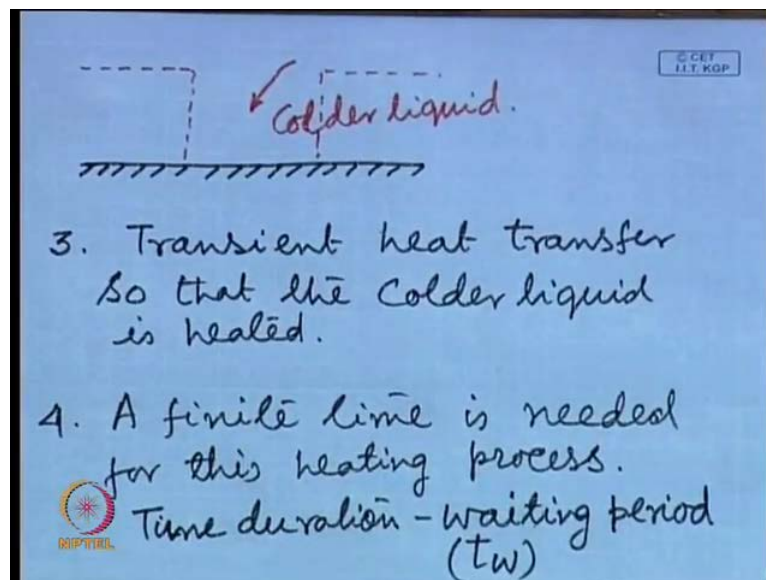 © CET
I.I.T. KGP
Colder liquid.
3. Transient heat transfer
so that the Colder liquid
is heated.
4. A finite time is needed
for this heating process.
Time duration - waiting period
(tw)
NPTEL